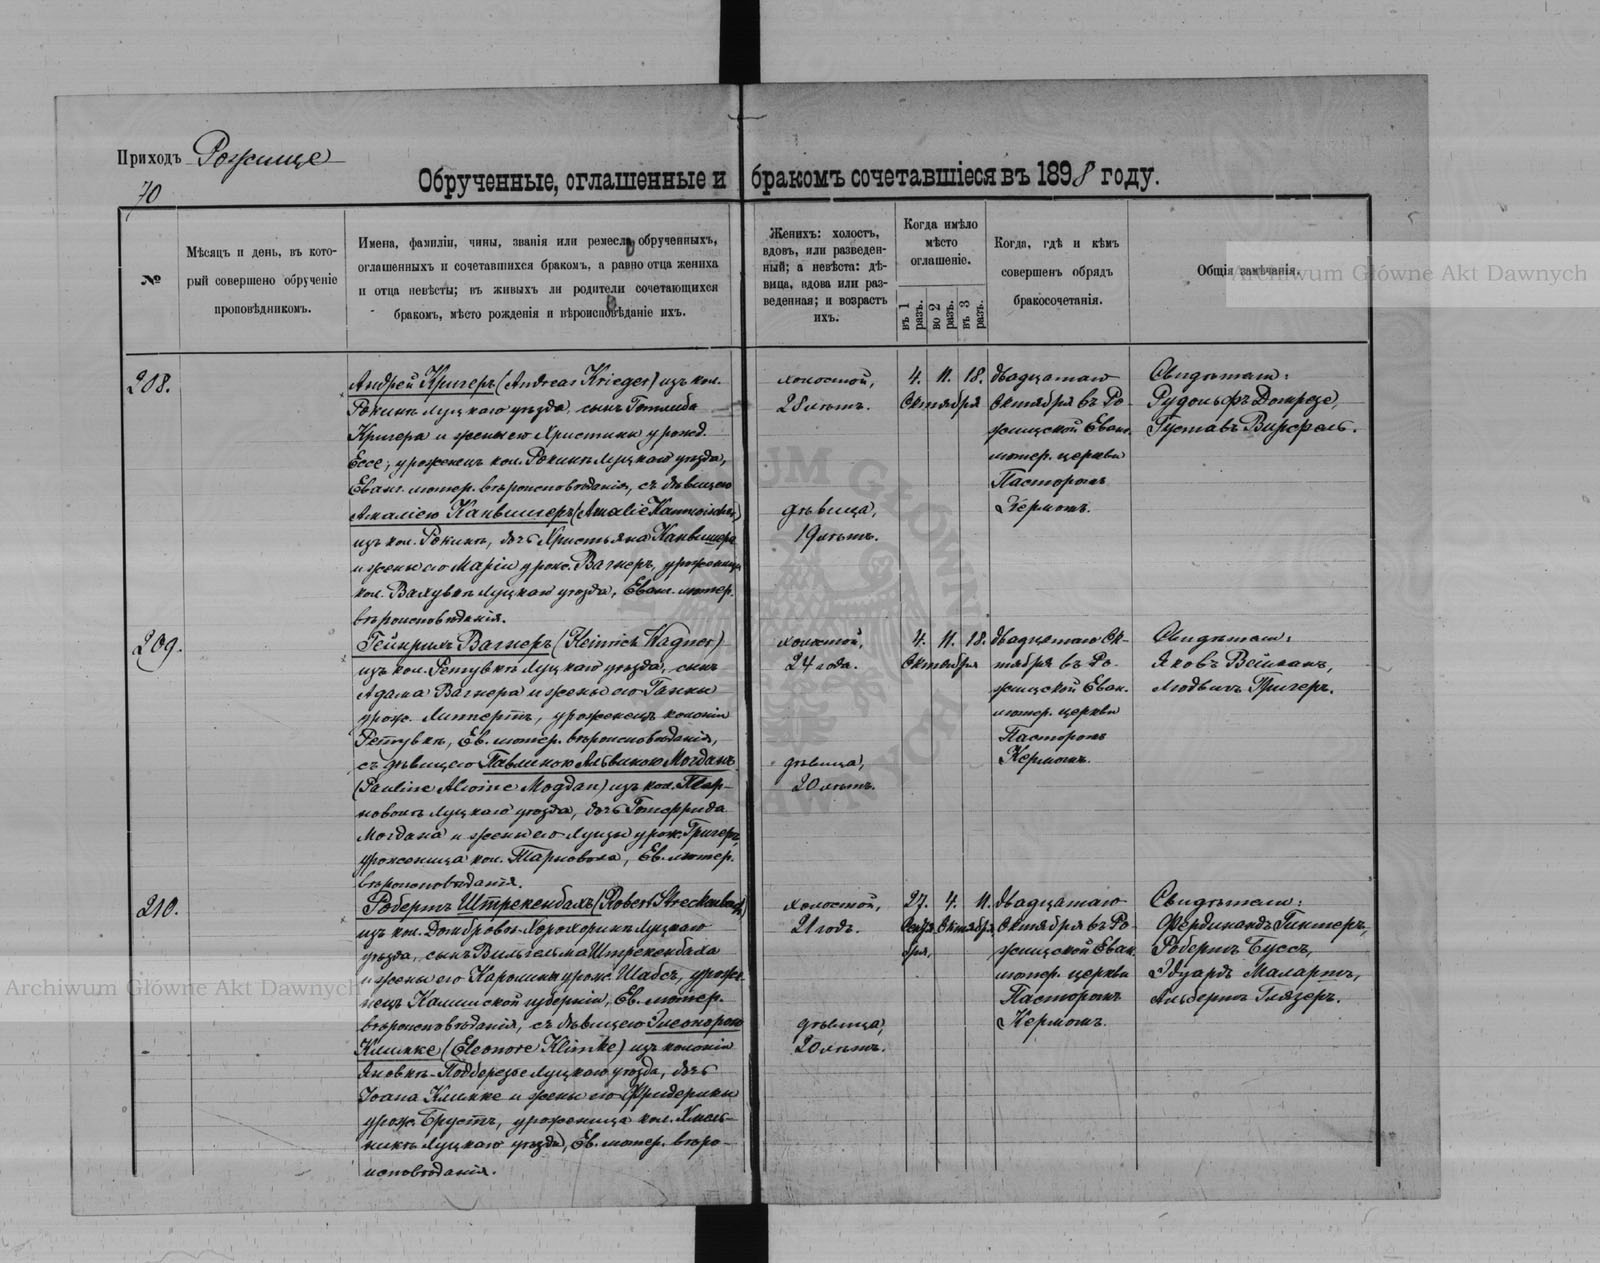 Приходъ Рожище
70
Обрученные, оглашенные и бракомъ сочетавшіеся въ 1898 году.
№
Мѣсяцъ и день, въ кото-
рый совершено обрученіе
проповѣдникомъ.
Имена, фамиліи, чины, званія или ремесла обрученныхъ,
оглашенныхъ и сочетавшихся бракомъ, а равно отца жениха
и отца невѣсты; въ живыхъ ли родители сочетающихся
бракомъ, мѣсто рожденія и вѣроисповѣданіе ихъ.
Женихъ: холостъ,
вдовъ, или разведен-
ный; а невѣста: дѣ-
вица, вдова или раз-
веденная; и возрастъ
ихъ.
Когда имѣло
мѣсто
оглашеніе.
въ 1 разъ.
во 2 разъ.
въ 3 разъ.
Когда, гдѣ и кѣмъ
совершенъ обрядъ
бракосочетанія.
Общія замѣчанія.
208.
Андрей Кригеръ (Andreas Krieger) изъ кол.
Рокинь Луцкаго уѣзда, сынъ Готлиба
Кригера и жены его Христины урожд.
Ессе, уроженецъ кол. Рокинь Луцкаго уѣзда,
Еванг. лютер. вѣроисповѣданія, съ дѣвицею
Амаліею Канвишеръ (Amalie Kannwischer)
изъ кол. Рокинь, дочь Христьяна Канвишера
и жены его Маріи урож. Вагнеръ, уроженица
кол. Луцкаго уѣзда, Еванг. лютер.
вѣроисповѣданія.
холостой,
28 лѣтъ.
дѣвица,
19 лѣтъ.
4. 11. 18.
Октября
двадцатаго
Октября въ Ро-
жищской Еванг.
лютер. церкви
Пасторомъ
Кермомъ.
Свидѣтели:
Рудольфъ
Густавъ
209.
Гейнрихъ Вагнеръ (Heinrich Wagner)
изъ кол. Луцкаго уѣзда, сынъ
Адама Вагнера и жены его Ганны
урож. Липпертъ, уроженецъ колоніи
Ев. лютер. вѣроисповѣданія,
съ дѣвицею Павлиною Альвиною Могданъ
(Pauline Alvine Mogdan) изъ кол. Тар-
новокъ Луцкаго уѣзда, дочь Готфрида
Могдана и жены его Луизы урож. Григеръ,
уроженица кол. Тарновока, Ев. лютер.
вѣроисповѣданія.
холостой,
24 года.
дѣвица,
20 лѣтъ.
4. 11. 18.
Октября
двадцатаго Ок-
тября въ Ро-
жищской Еван.
лютер. церкви
Пасторомъ
Кермомъ.
Свидѣтели:
Яковъ Вейманъ,
Людвигъ Григеръ.
210.
Робертъ Штрекенбахъ (Robert Streckenbach)
изъ кол. Домброва-Хорохоринъ Луцкаго
уѣзда, сынъ Вильгельма Штрекенбаха
и жены его Каролины урож. Шабсъ, уроже-
нецъ Калишской губерніи, Ев. лютер.
вѣроисповѣданія, съ дѣвицею Элеонорою
Климке (Eleonore Klimke) изъ колоніи
Яновка-Подберезье Луцкаго уѣзда, дочь
Іоана Климке и жены его Фридерики
урож. Брустъ, уроженица кол. Хмель-
никъ Луцкаго уѣзда, Ев. лютер. вѣро-
исповѣданія.
холостой,
21 годъ.
дѣвица,
20 лѣтъ.
27. 4. 11.
Сентя- Октября
бря
двадцатаго
Октября въ Ро-
жищской Еван.
лютер. церкви
Пасторомъ
Кермомъ.
Свидѣтели:
Фердинандъ Гинтеръ,
Робертъ Буссъ,
Эдуардъ Малартъ,
Альбертъ Глязеръ.
Archiwum Główne Akt Dawnych
Archiwum Główne Akt Dawnych